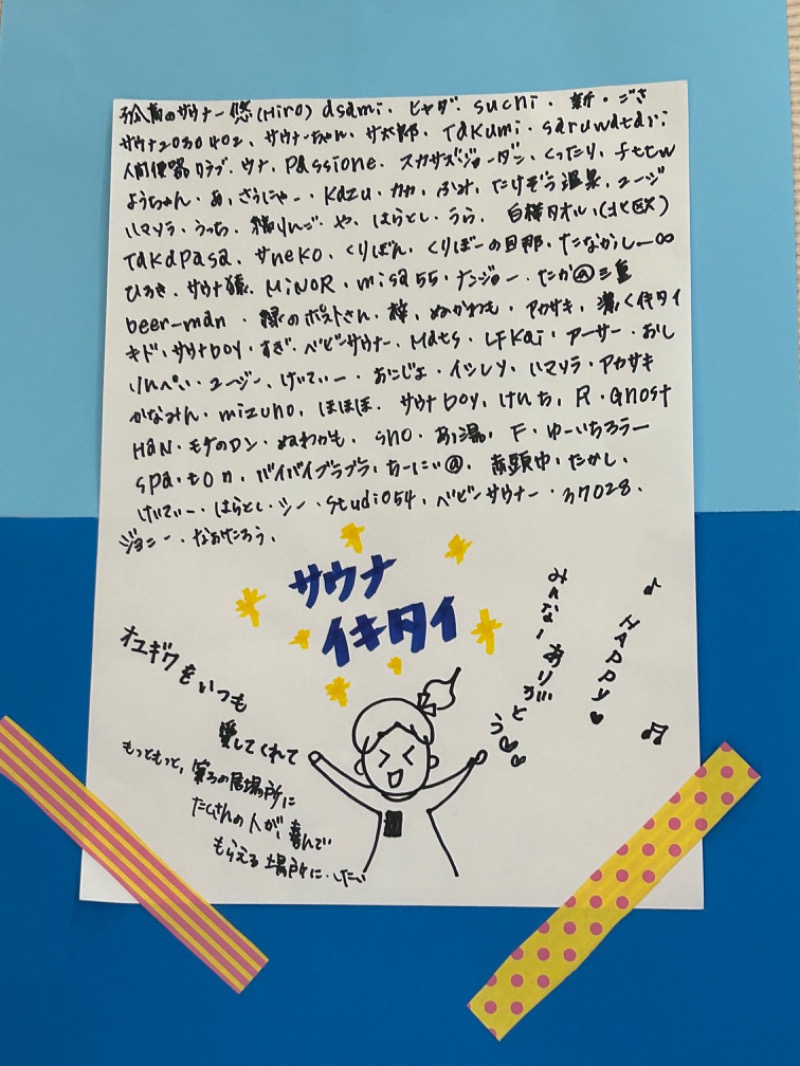 孤高のサウナー悠(Hiro) asami、ヒャダ、suchi、新・ごさ
サウナ2030402、サウナーちゃん、サ太郎、Takumi・saruwatari
人間便器クラブ、ウナ、Passione、スカサズジョーダン、くったり、fttw
ようちゃん・あ、さうにゃー・Kazu・カカ、ふみ、たけぞう温泉、ユージ
ハマソラ・うっち、猫りんご・や、はらとし・うら、白樺タオル、(北区)
Takapasa、サneko、くりぼん、くりぼーの旦那・たなかうしー∞
ひろき、サウナ猿、MiNOR・misa55・ナンジョー、たか@三重
beer-man・緑のポストさん、梓、ぬかわも・アカザキ、蒸く伊タイ
キド・サウナboy・すぎ、ベビーサウナー、Mats・LFKai・アーサー・おし
りんぺい・ユージー、けいてぃー・おにじょ・イシレソ、ハマソラ・アカサキ
かなみん・mizuno、ほほほ、サウナboy、けんち、R・Ghost
HaN・モゲのロン・ぬわかも、sho、あり湯、F・ゆーいちろうー
spa・ton、バイバイブラブラ、ちーにぃ@、赤頭巾、たかし、
けいてぃー・はらとし・シー・studio54、ベビーサウナー・37028、
ジョニー・なおたろう、
サウナ
イキタイ
みんなーありがとう♡♡
♪ HAPPY♥ ♬
オユギワをいつも
愛してくれて
もっともっと、第3の居場所に
たくさんの人が喜んで
もらえる場所に・したい